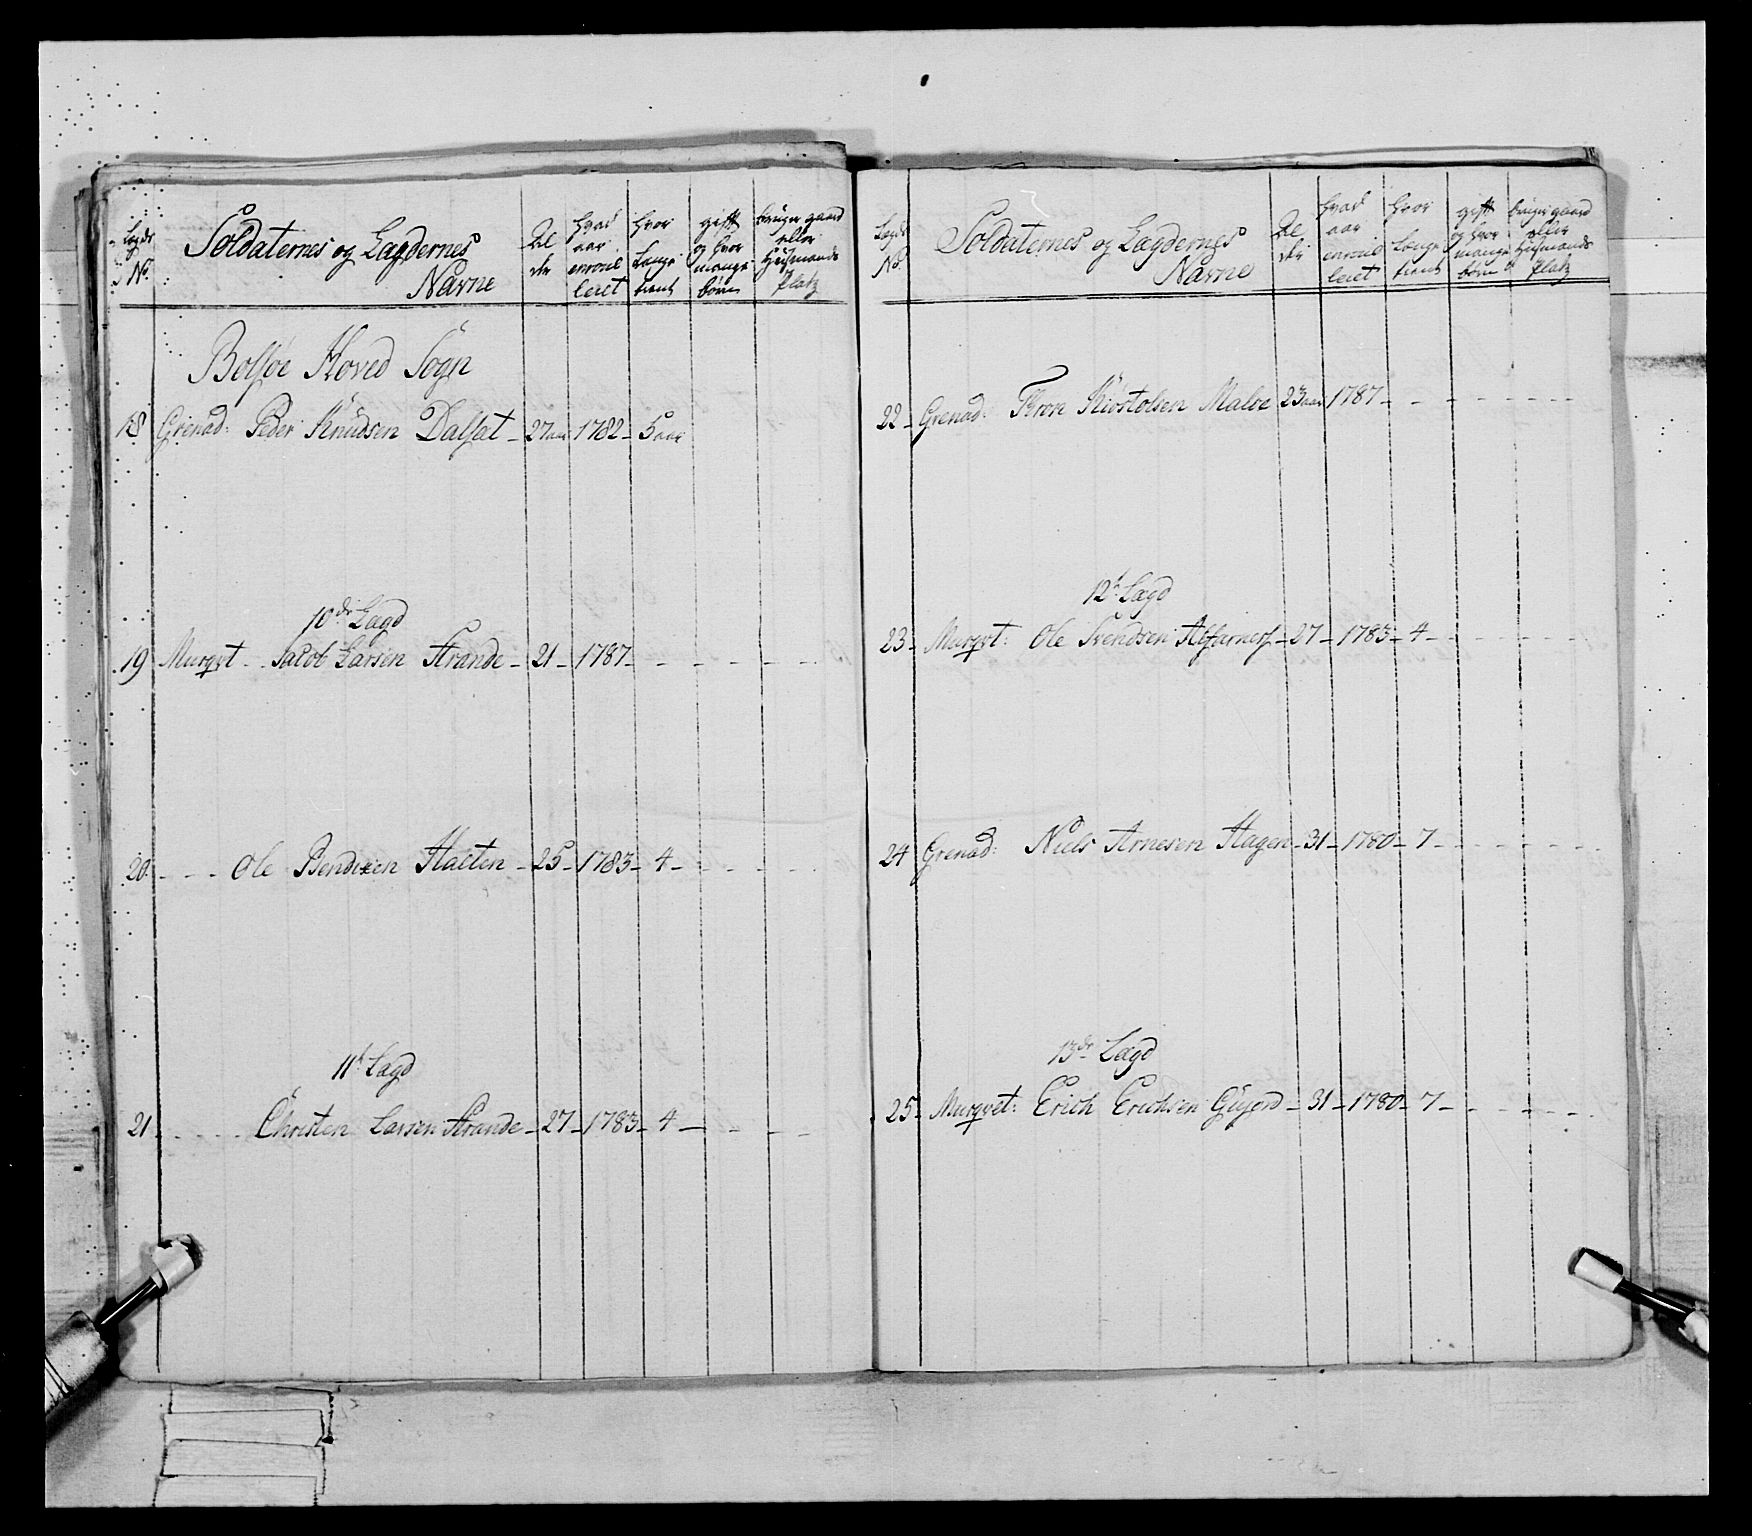 Lægds No. Soldaternes og Lagdernes Navne Al der hvad aar enroul leret hvor længe tient gift og hvor mange børn bruger gaard eller Huusmands Platz
Bolsøe Hoved Sogn
18 Grenad: Peder Knudsen Dalset - 27 aar 1782 - 5 aar
10de Lagd
19 Murqvt - Jacob Larsen Strande - 21 - 1787 -
20 - - - Ole Bendixen Haeten - 25 - 1783 - 4 -
11te Lagd
21 - - - Christen Larsen Strande - 27 - 1783 - 4 -
Lægds No. Soldaternes og Lagdernes Navne Al der hvad aar enroul leret hvor længe tient gift og hvor mange børn bruger gaard eller Huusmands Platz
22 - Grenad: Tron Kiøstolsen Maloe 23 aar 1787 -
12te Lagd
23 - Murqvt: Ole Svendsen - 27 - 1783 - 4 -
24 Grenad: Niels Arnesen Hagen - 31 - 1780 - 7 -
13de Lagd
25 - Murqvet: Erich Erichsen - 31 - 1780 - 7 -